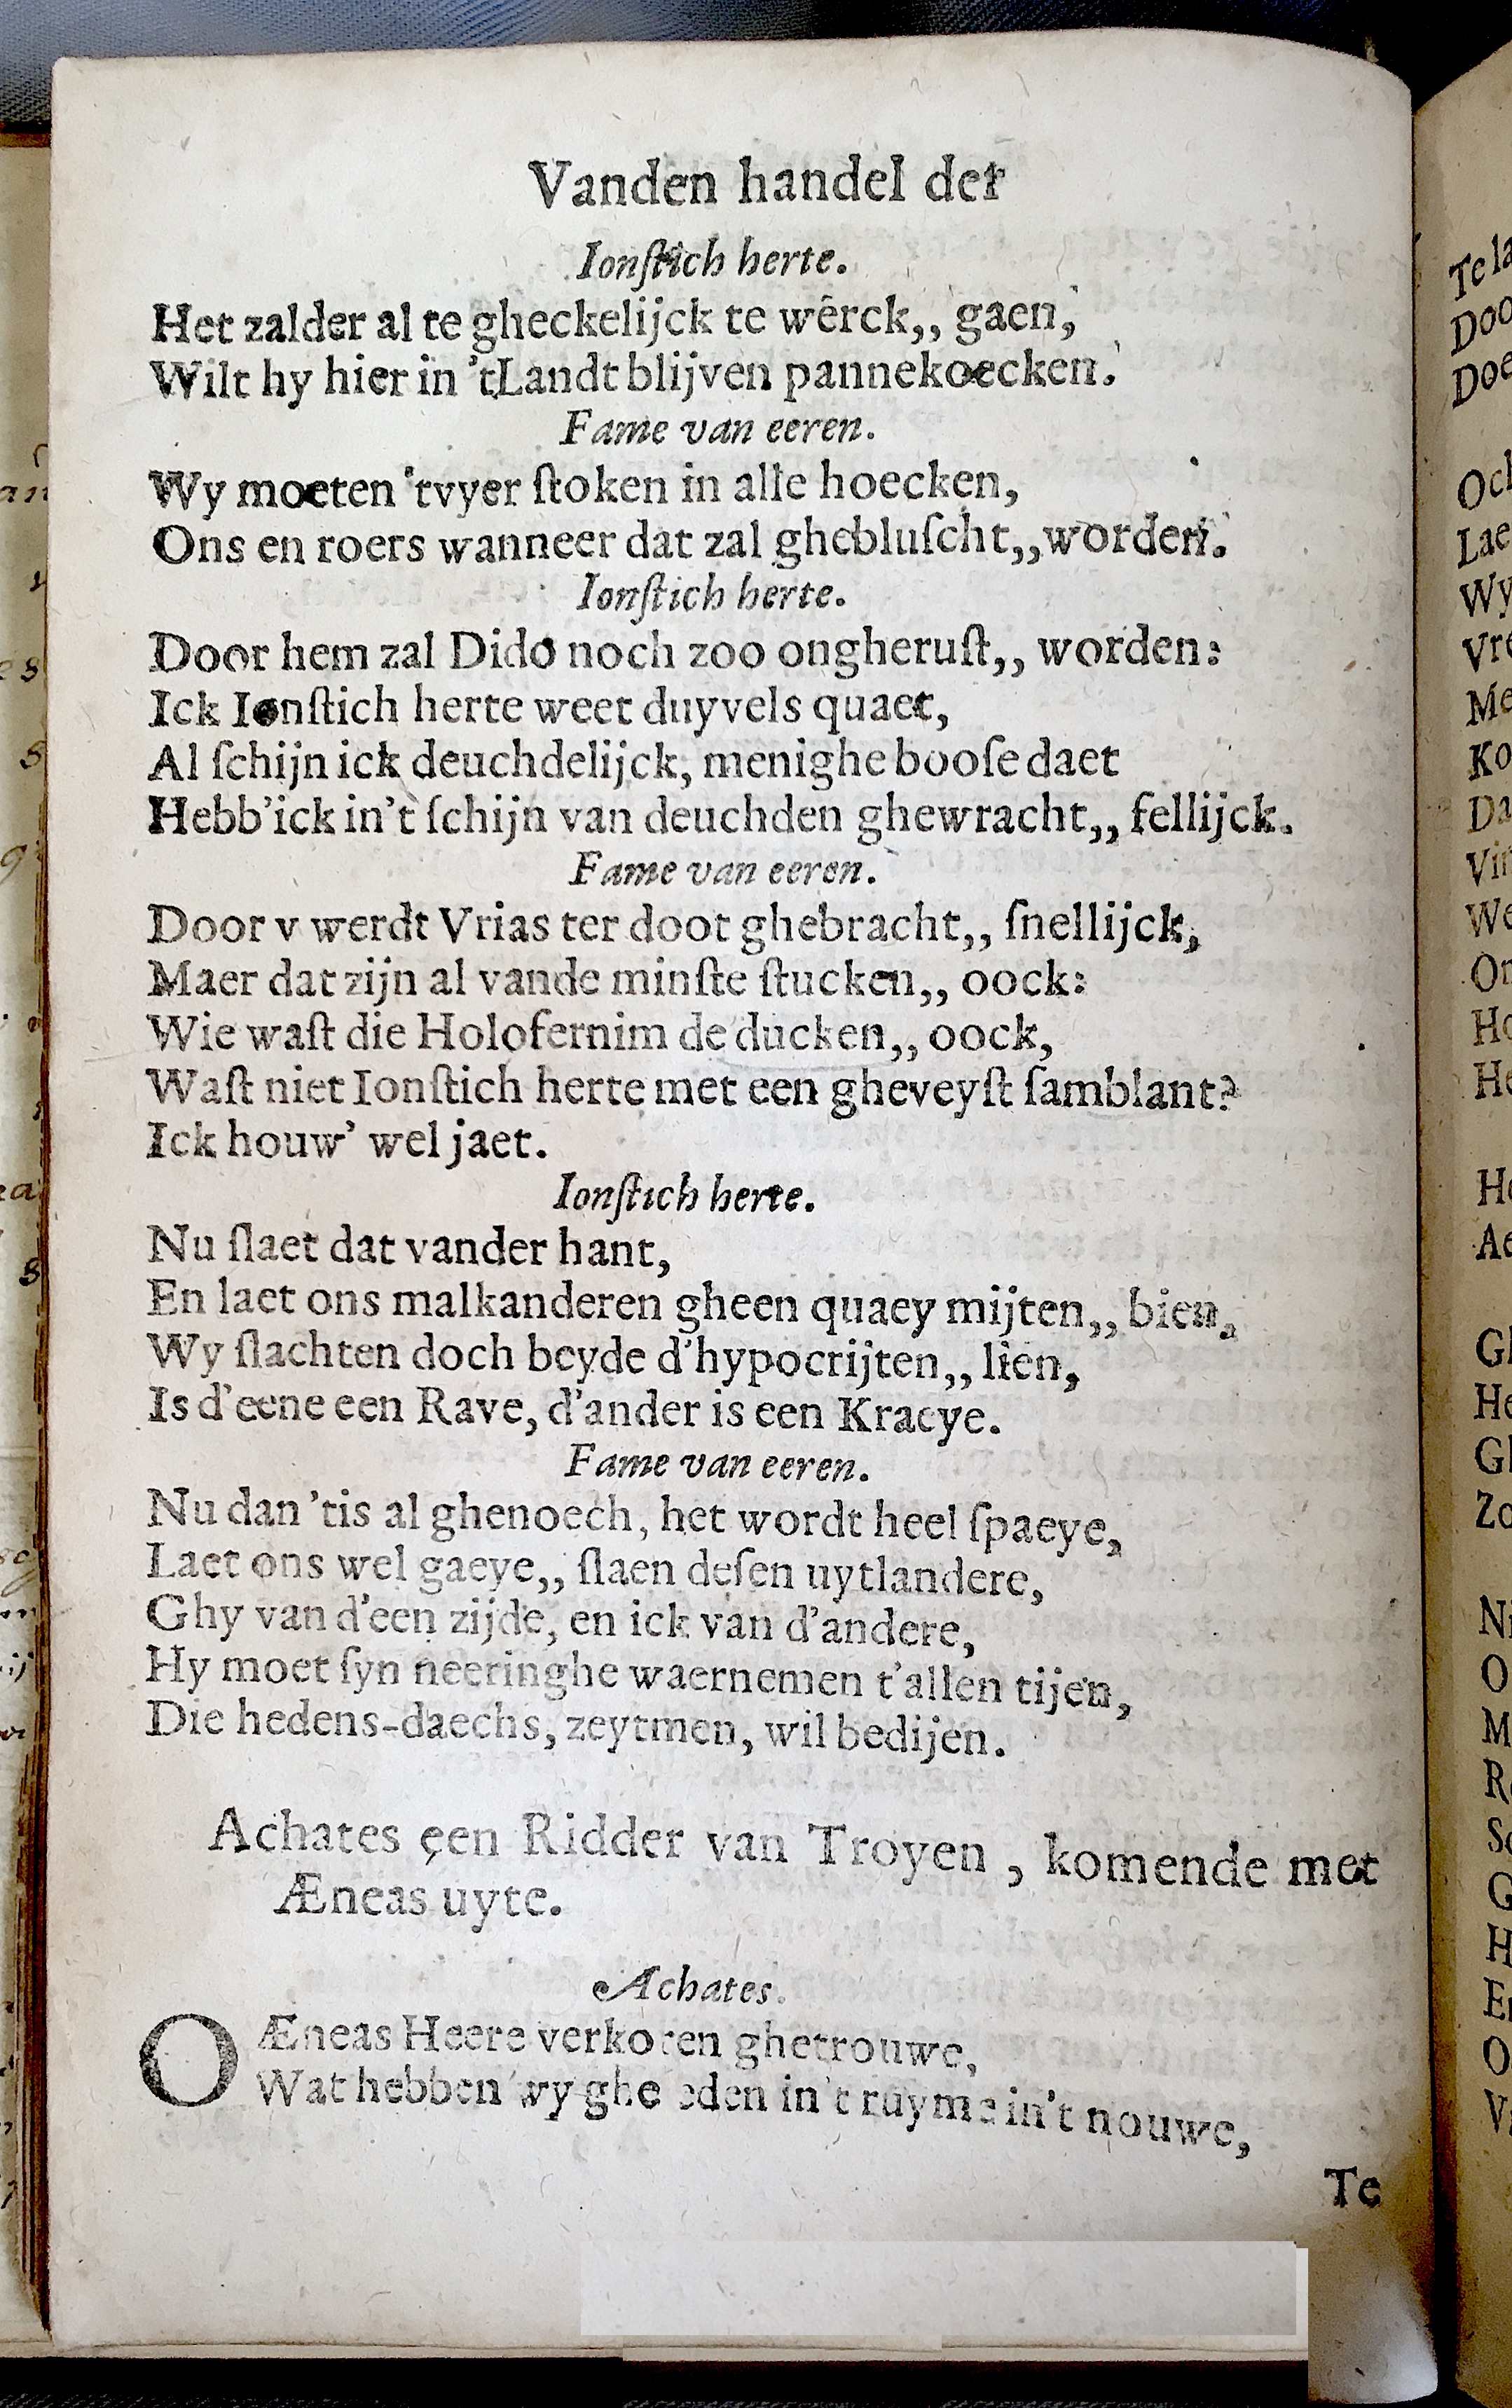 Vanden handel der
Ionſtich herte.
Het zalder al te gheckelijck te wêrck,, gaen,
Wilt hy hier in 'tLandt blijven pannekoecken.
Fame van eeren.
Wy moeten 'tvyer ſtoken in alle hoecken,
Ons en roers wanneer dat zal ghebluſcht,,worden.
Ionſtich herte.
Door hem zal Dido noch zoo ongheruſt,, worden:
Ick Ionſtich herte weet duyvels quaet,
Al ſchijn ick deuchdelijck, menighe booſe daet
Hebb'ick in't ſchijn van deuchden ghewracht,, fellijck.
Fame van eeren.
Door v werdt Vrias ter doot ghebracht,, ſnellijck,
Maer dat zijn al vande minſte ſtucken,, oock:
Wie waſt die Holofernim de ducken,, oock,
Waſt niet Ionſtich herte met een gheveyſt ſamblant?
Ick houw' wel jaet.
Ionſtich herte.
Nu ſlaet dat vander hant,
En laet ons malkanderen gheen quaey mijten,, bien,
Wy ſlachten doch beyde d'hypocrijten,, lien,
Is d'eene een Rave, d'ander is een Kraeye.
Fame van eeren.
Nu dan 'tis al ghenoech, het wordt heel ſpaeye,
Laet ons wel gaeye,, ſlaen deſen uytlandere,
Ghy van d'een zijde, en ick van d'andere,
Hy moet ſyn neeringhe waernemen t'allen tijen,
Die hedens-daechs, zeytmen, wil bedijen.
Achates een Ridder van Troyen , komende met
Æneas uyte.
Achates.
O Æneas Heere verkoren ghetrouwe,
Wat hebben wy ghe eden in't ruyme in't nouwe,
Te